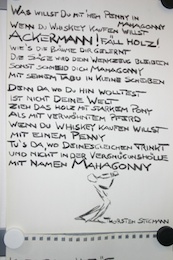 WAS WILLST DU MIT 'NEM PENNY IN
MAHAGONNY
WENN DU WHISKEY KAUFEN WILLST
ACKERMANN! FÄLL HOLZ!
WIE'S DIE BÄUME DIR GELERNT
DIE SÄGE WIRD DEIN WERKZEUG BLEIBEN
SONST SCHNEID DICH MAHAGONNY
MIT SEINEM TABU IN KLEINE SCHEIBEN
DENN DA, WO DU HIN WOLLTEST
IST NICHT DEINE WELT
ZIEH DAS HOLZ MIT STARKEM PONY
ALS MIT VERWÖHNTEM PFERD
WENN DU WHISKEY KAUFEN WILLST
MIT EINEM PENNY
TU'S DA, WO DEINESGLEICHEN TRINKT
UND NICHT IN DER VERGNÜGUNSHÖLLE
MIT NAMEN MAHAGONNY